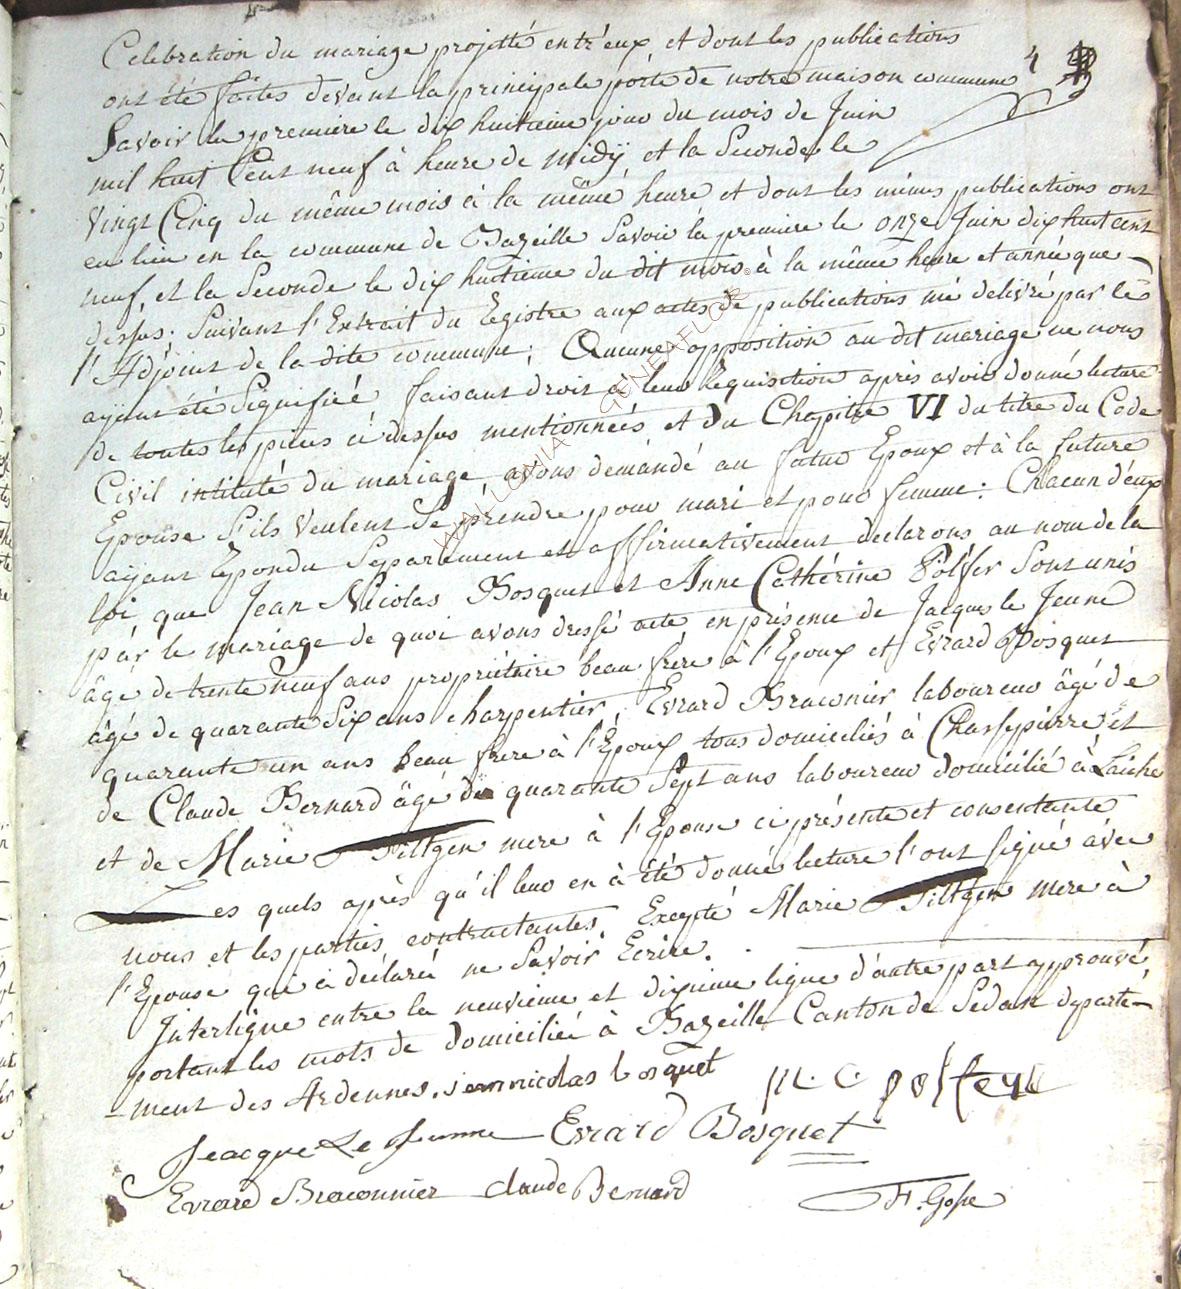 Celebration du mariage projetté entr'eux et dont les publications
4
ont été faites devant la principale porte de notre maison commune
Savoir la premiere le dix huitieme jour du mois de Juin
mil huit Cent neuf à heure de midÿ et la Seconde le
vingt Cinq du même mois à la même heure et dont les mêmes publications ont
eu lieu en la commune de Bazeille Savoir la premiere le onze Juin dix huit cent
neuf, et la Seconde le dix huitieme du dit mois à la même heure et année que
dessus; Suivant l'Extrait du Registre aux actes de publications mé délivré par le
l'Adjoint de la dite commune; Aucune opposition au dit mariage ne nous
aÿant été Signifiée faisant droit à leur Requisition après avoir donné lecture
de toutes les pieces ci dessus mentionnées et du Chapitre VI du titre du Code
Civil intitulé du mariage avons demandé au futur Epoux et à la future
Epouse S'ils veulent Se prendre pour mari et pour femme: Chacun d'eux
aÿant Repondu Séparément et affirmativement declarons au nom de la
loi que Jean Nicolas Bosquet et Anne Cathérine Polfer Sont unis
par le mariage de quoi avons dressé acte en présence de Jacques le Jeune
âgé de trente neuf ans propriétaire beau frere à l'Epoux et Evrard Bosquet
âgé de quarante Six ans charpentier, Evrard Braconier laboureur âgé de
quarante un ans beau frere à l'Epoux tous domiciliés à Chassepierre et
de Claude Bernard âgé de quarante Sept ans laboureur domicilié à Laiche
et de Marie Filtgen mere à l'Epouse ci présente et consentante
Les quels après qu'il leur en à été donné lecture l'ont signé avec
nous et les parties contractantes. Excepté Marie Filtgen mere à
l'Epouse qui à déclaré ne Savoir Ecrire.
Interligne entre la neuvieme et dixieme ligne d'autre part approuvé
portant les mots de domicilié à Bazeille Canton de Sedan departe-
-ment des Ardennes. jean nicolas bosquet
Jeacque Le Jeunne Evrard Bosquet
Evrard Braconnier claude Bernard
WALLONIA GENEAFLOR